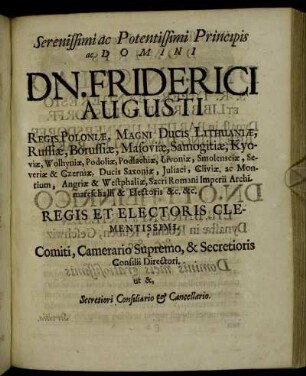 Serenissimi ac Potentissimi Principis
ac DOMINI
DN. FRIDERICI
AUGUSTI
REGIS POLONIÆ, MAGNI DUCIS LITHUANIÆ,
Russiæ, Borussiæ, Masoviæ, Samogitiæ, Kyo-
viæ, Wolhyniæ, Podoliæ, Podlachiæ, Livoniæ, Smolenciæ, Se-
veriæ & Czerniæ, Ducis Saxoniæ, Juliaci, Cliviæ, ac Mon-
tium, Angriæ & Westphaliæ, Sacri Romani Imperii Archi-
mareschalli & Electoris &c. &c.
REGIS ET ELECTORIS CLE-
MENTISSIMI,
Comiti, Camerario Supremo, & Secretioris
Consilii Directori,
ut &,
Secretiori Consiliario & Cancellario.